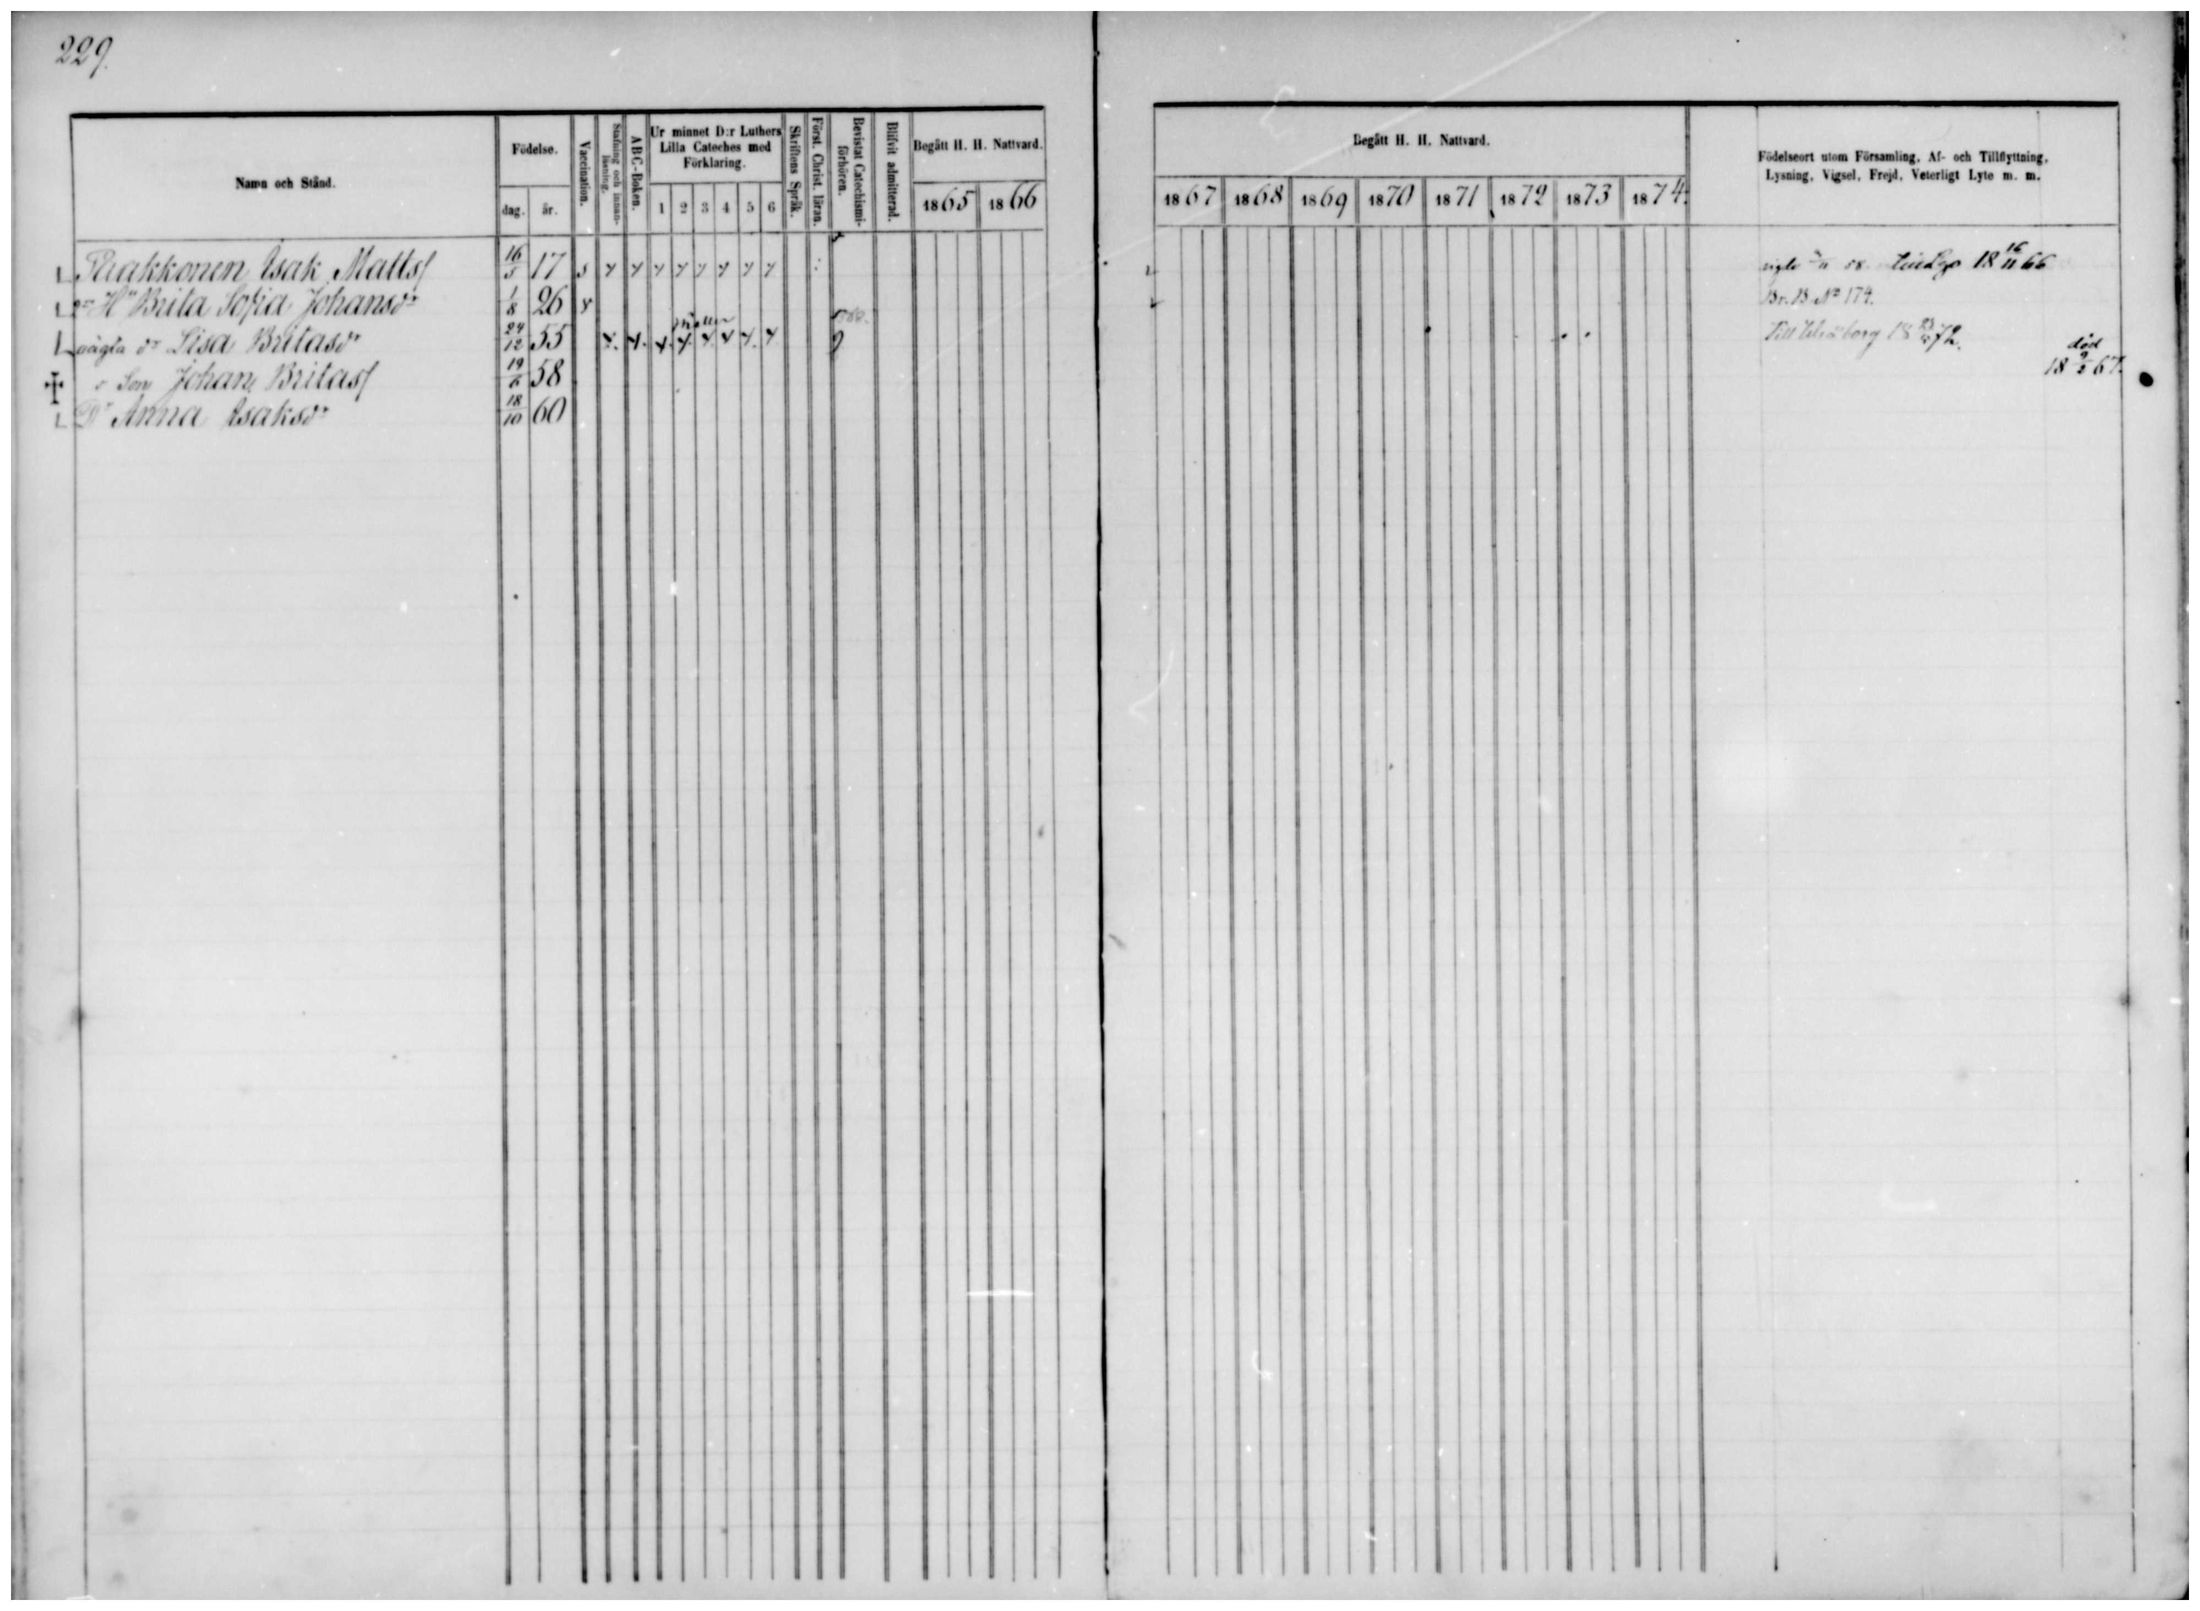 229.
Namn och Stånd.
Födelse.
dag. år.
Vaccination.
Stafning och innanläsning.
ABC-Boken.
Ur minnet D:r Luthers Lilla Cateches med Förklaring.
1 2 3 4 5 6
Skriftens Språk.
Först. Christ. läran.
Bevistat Catechismiförhören.
Blifvit admitterad.
Begått H. H. Nattvard.
1865 1866
Begått H. H. Nattvard.
1867 1868 1869 1870 1871 1872 1873 1874.
Födelseort utom Församling, Af- och Tillflyttning, Lysning, Vigsel, Frejd, Veterligt Lyte m. m.
Isak Matts 16/5 17 18 16/11 66
Hu Brita Sofia Johansdr 1/8 26 Br. B. No 174.
oägta dr Lisa Britasdr 24/12 55 Till Uleåborg 18 72.
o Son Johan Britas 19/6 58 död 18 9/2 67.
Dr Anna Isaksdr 18/10 60